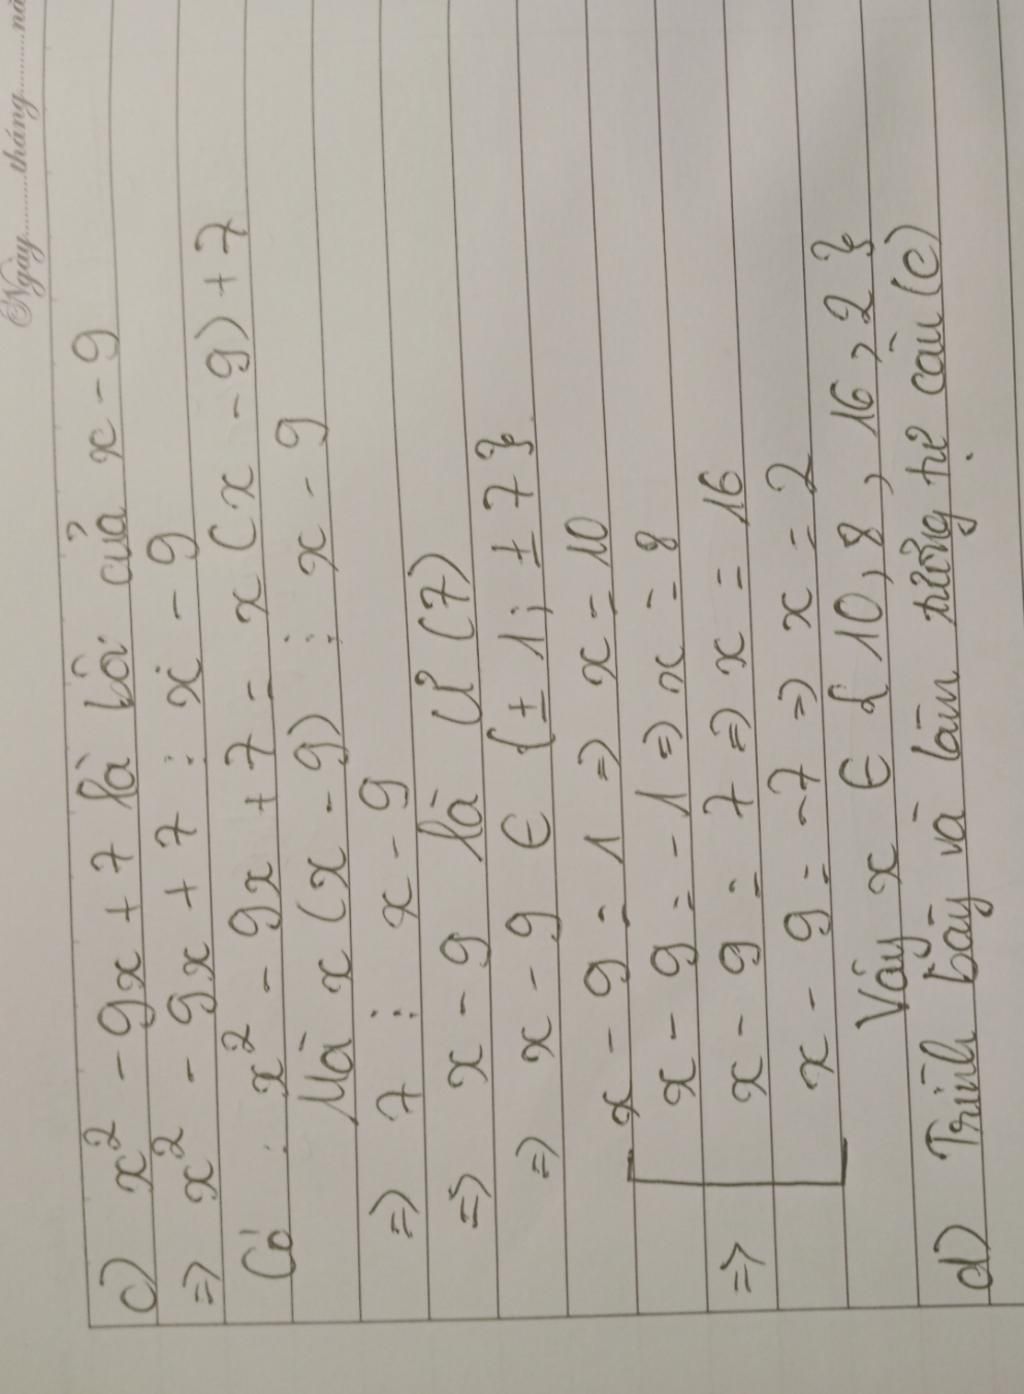 Ngày.........tháng.........nă
c) x² - 9x + 7 là bội của x - 9
=> x² - 9x + 7 ⋮ x - 9
Có : x² - 9x + 7 = x (x - 9) + 7
Mà x (x - 9) ⋮ x - 9
=> 7 ⋮ x - 9
=> x - 9 là Ư (7)
=> x - 9 ∈ {± 1; ± 7}
x - 9 = 1 => x = 10
x - 9 = -1 => x = 8
=> x - 9 = 7 => x = 16
x - 9 = -7 => x = 2
Vậy x ∈ {10, 8, 16, 2}
d) Trình bày và làm tương tự câu (c)